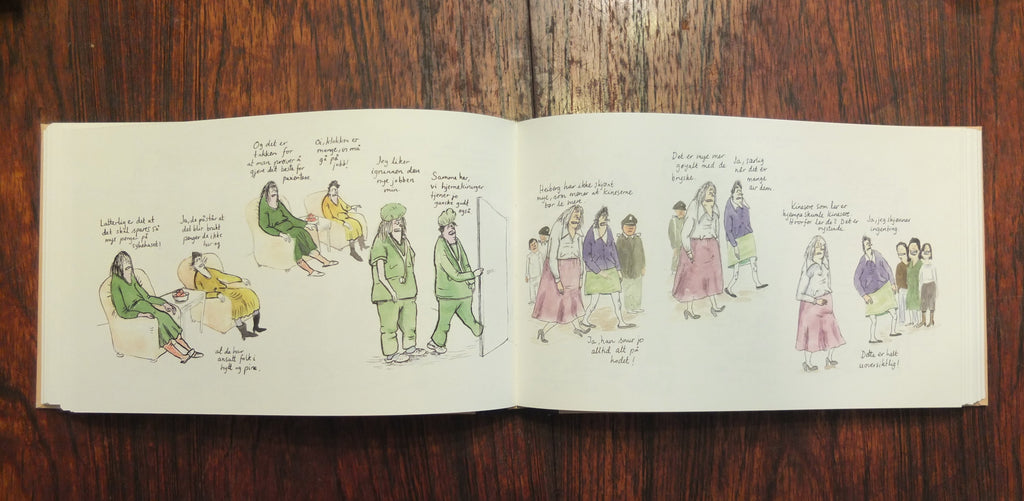 Latterlig er det at
det skal spares så
mye penger på
sykehuset!
Ja, de påstår at
det blir brukt
penger de ikke
har og
at de har
ansatt folk i
hytt og pine.
Og det er
takken for
at man prøver å
gjøre det beste for
pasientene.
Oi, klokken er
mange, vi må
gå på
jobb!
Jeg liker
ignunnen den
nye jobben
min.
Samme her,
vi hjernekirurger
tjener jo
ganske godt
også
Høiberg har ikke skjønt
mye, som mener at kineserne
bør le mere
Ja, han snur jo
alltid alt på
hodet!
Det er mye mer
gøyalt med de
briske.
Ja, særlig
når det er
mange
av dem
Kinesere som ler er
hjernevaskede kinesere
Hvorfor ler de? Det er
nifst
Ja, jeg skjønner
ingenting.
Dette er helt
uoversiktlig!